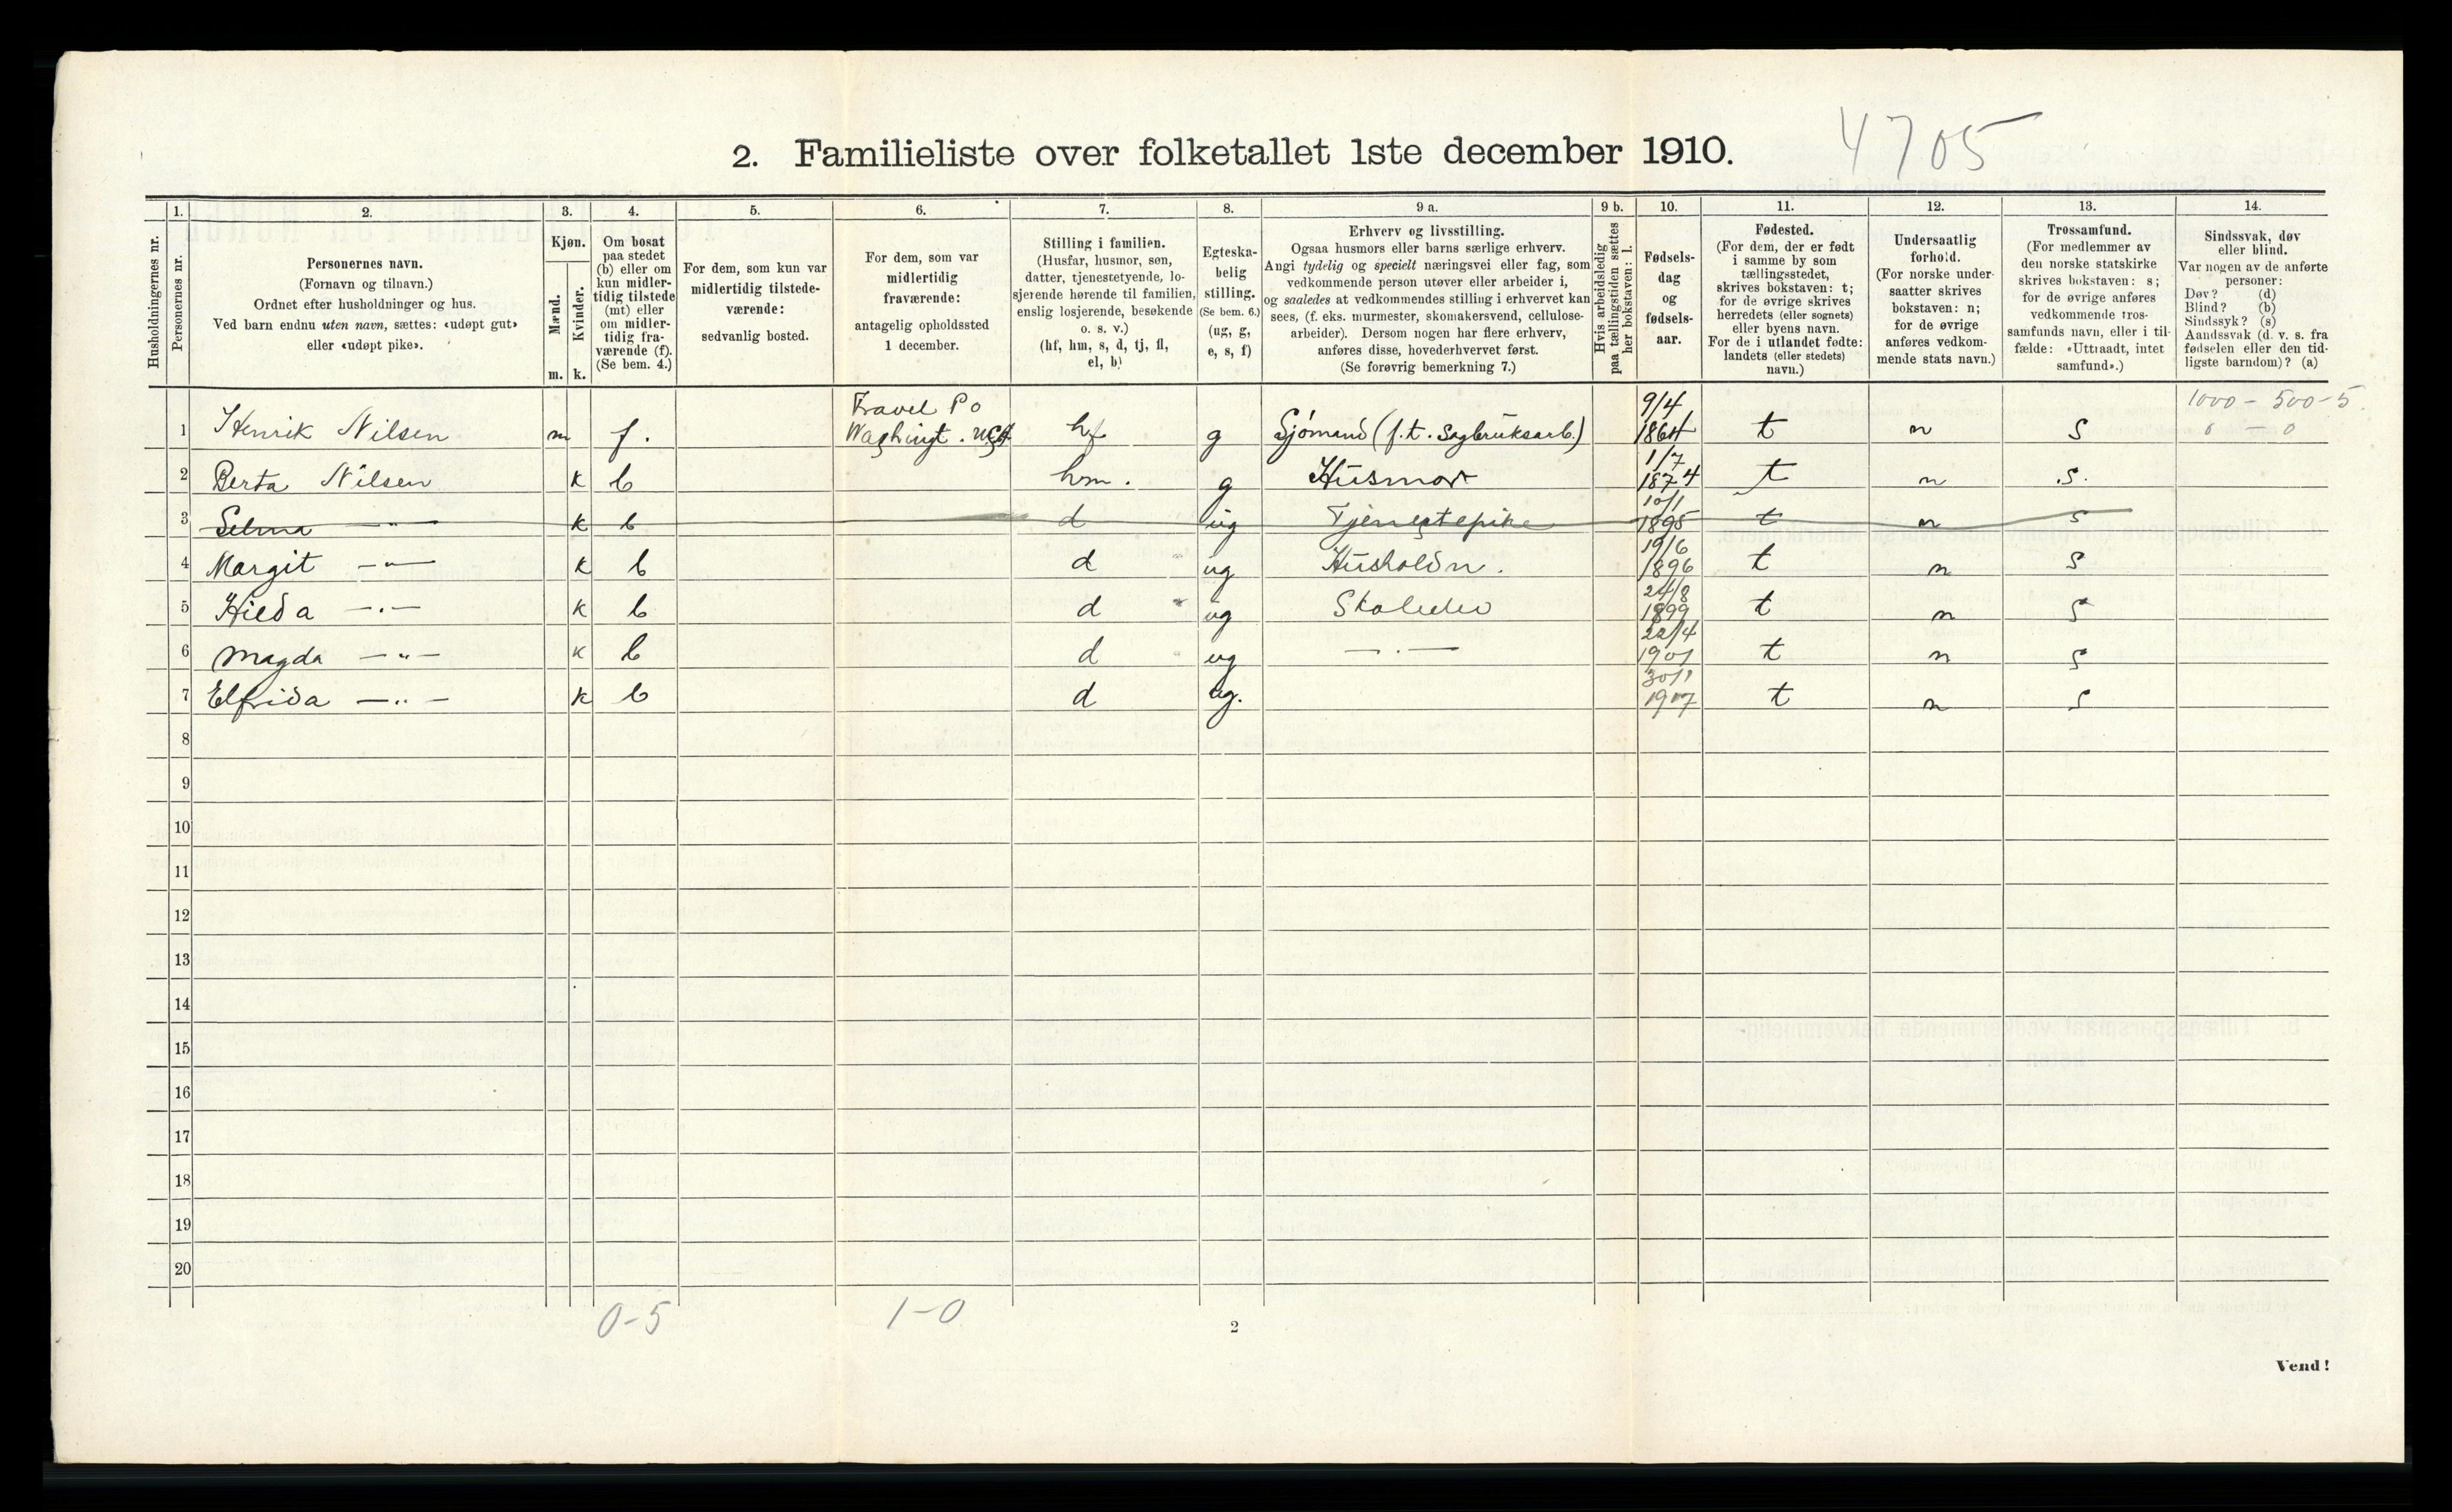 4705
2. Familieliste over folketallet 1ste december 1910.
Husholdningernes nr.
1.
Personernes nr.
2.
Personernes navn.
(Fornavn og tilnavn.)
Ordnet efter husholdninger og hus.
Ved barn endnu uten navn, sættes: «udøpt gut»
eller «udøpt pike».
3.
Kjøn.
Mænd.
Kvinder.
m. k.
4.
Om bosat
paa stedet
(b) eller om
kun midler-
tidig tilstede
(mt) eller
om midler-
tidig fra-
værende (f).
(Se bem. 4.)
5.
For dem, som kun var
midlertidig tilstede-
værende:
sedvanlig bosted.
6.
For dem, som var
midlertidig
fraværende:
antagelig opholdssted
1 december.
7.
Stilling i familien.
(Husfar, husmor, søn,
datter, tjenestetyende, lo-
sjerende hørende til familien,
enslig losjerende, besøkende
o. s. v.)
(hf, hm, s, d, tj, fl,
el, b)
8.
Egteska-
belig
stilling.
(Se bem. 6.)
(ug, g,
e, s, f)
9 a.
Erhverv og livsstilling.
Ogsaa husmors eller barns særlige erhverv.
Angi tydelig og specielt næringsvei eller fag, som
vedkommende person utøver eller arbeider i,
og saaledes at vedkommendes stilling i erhvervet kan
sees, (f. eks. murmester, skomakersvend, cellulose-
arbeider). Dersom nogen har flere erhverv,
anføres disse, hovederhvervet først.
(Se forøvrig bemerkning 7.)
9 b.
Hvis arbeidsledig
paa tællingstiden sættes
her bokstaven: l.
10.
Fødsels-
dag
og
fødsels-
aar.
11.
Fødested.
(For dem, der er født
i samme by som
tællingsstedet,
skrives bokstaven: t;
for de øvrige skrives
herredets (eller sognets)
eller byens navn.
For de i utlandet fødte:
landets (eller stedets)
navn.)
12.
Undersaatlig
forhold.
(For norske under-
saatter skrives
bokstaven: n;
for de øvrige
anføres vedkom-
mende stats navn.)
13.
Trossamfund.
(For medlemmer av
den norske statskirke
skrives bokstaven: s;
for de øvrige anføres
vedkommende tros-
samfunds navn, eller i til-
fælde: «Uttraadt, intet
samfund».)
14.
Sindssvak, døv
eller blind.
Var nogen av de anførte
personer:
Døv? (d)
Blind? (b)
Sindssyk? (s)
Aandssvak (d. v. s. fra
fødselen eller den tid-
ligste barndom)? (a)
1000 - 500 - 5
0 - 0
1 Henrik Nilsen m f. Travel Po Washingt. USA hf g Sjømand (f.t. Sagbruksarb.) 9/4 1864 t n s
2 Berta Nilsen k b hm. g Husmor 1/7 1874 t n s.
3 Selma —"— k b d ug Tjenestepike 10/1 1895 t n s
4 Margit —"— k b d ug Husholdn. 19/6 1896 t n s
5 Hilda —"— k b d ug 24/8 1899 t n s
6 Magda —"— k b d ug —"— 22/4 1901 t n s
7 Elfrida —"— k b d ug. 30/1 1907 t n s
8
9
10
11
12
13
14
15
16
17
18
19
20
0-5 1-0
2
Vend!